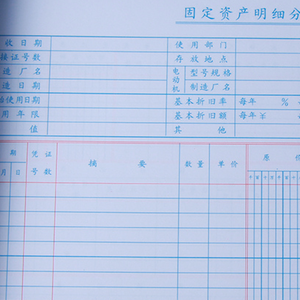 固定资产明细分
收日期 使用部门
接证号数 存放地点
造厂名 电动机 型号规格
造日期 制造厂名
始使用日期 基本折旧率 每年 %
用年限 基本折旧额 每年￥
值 其他
期 凭证 摘要 数量 单价 原
月 日 号数